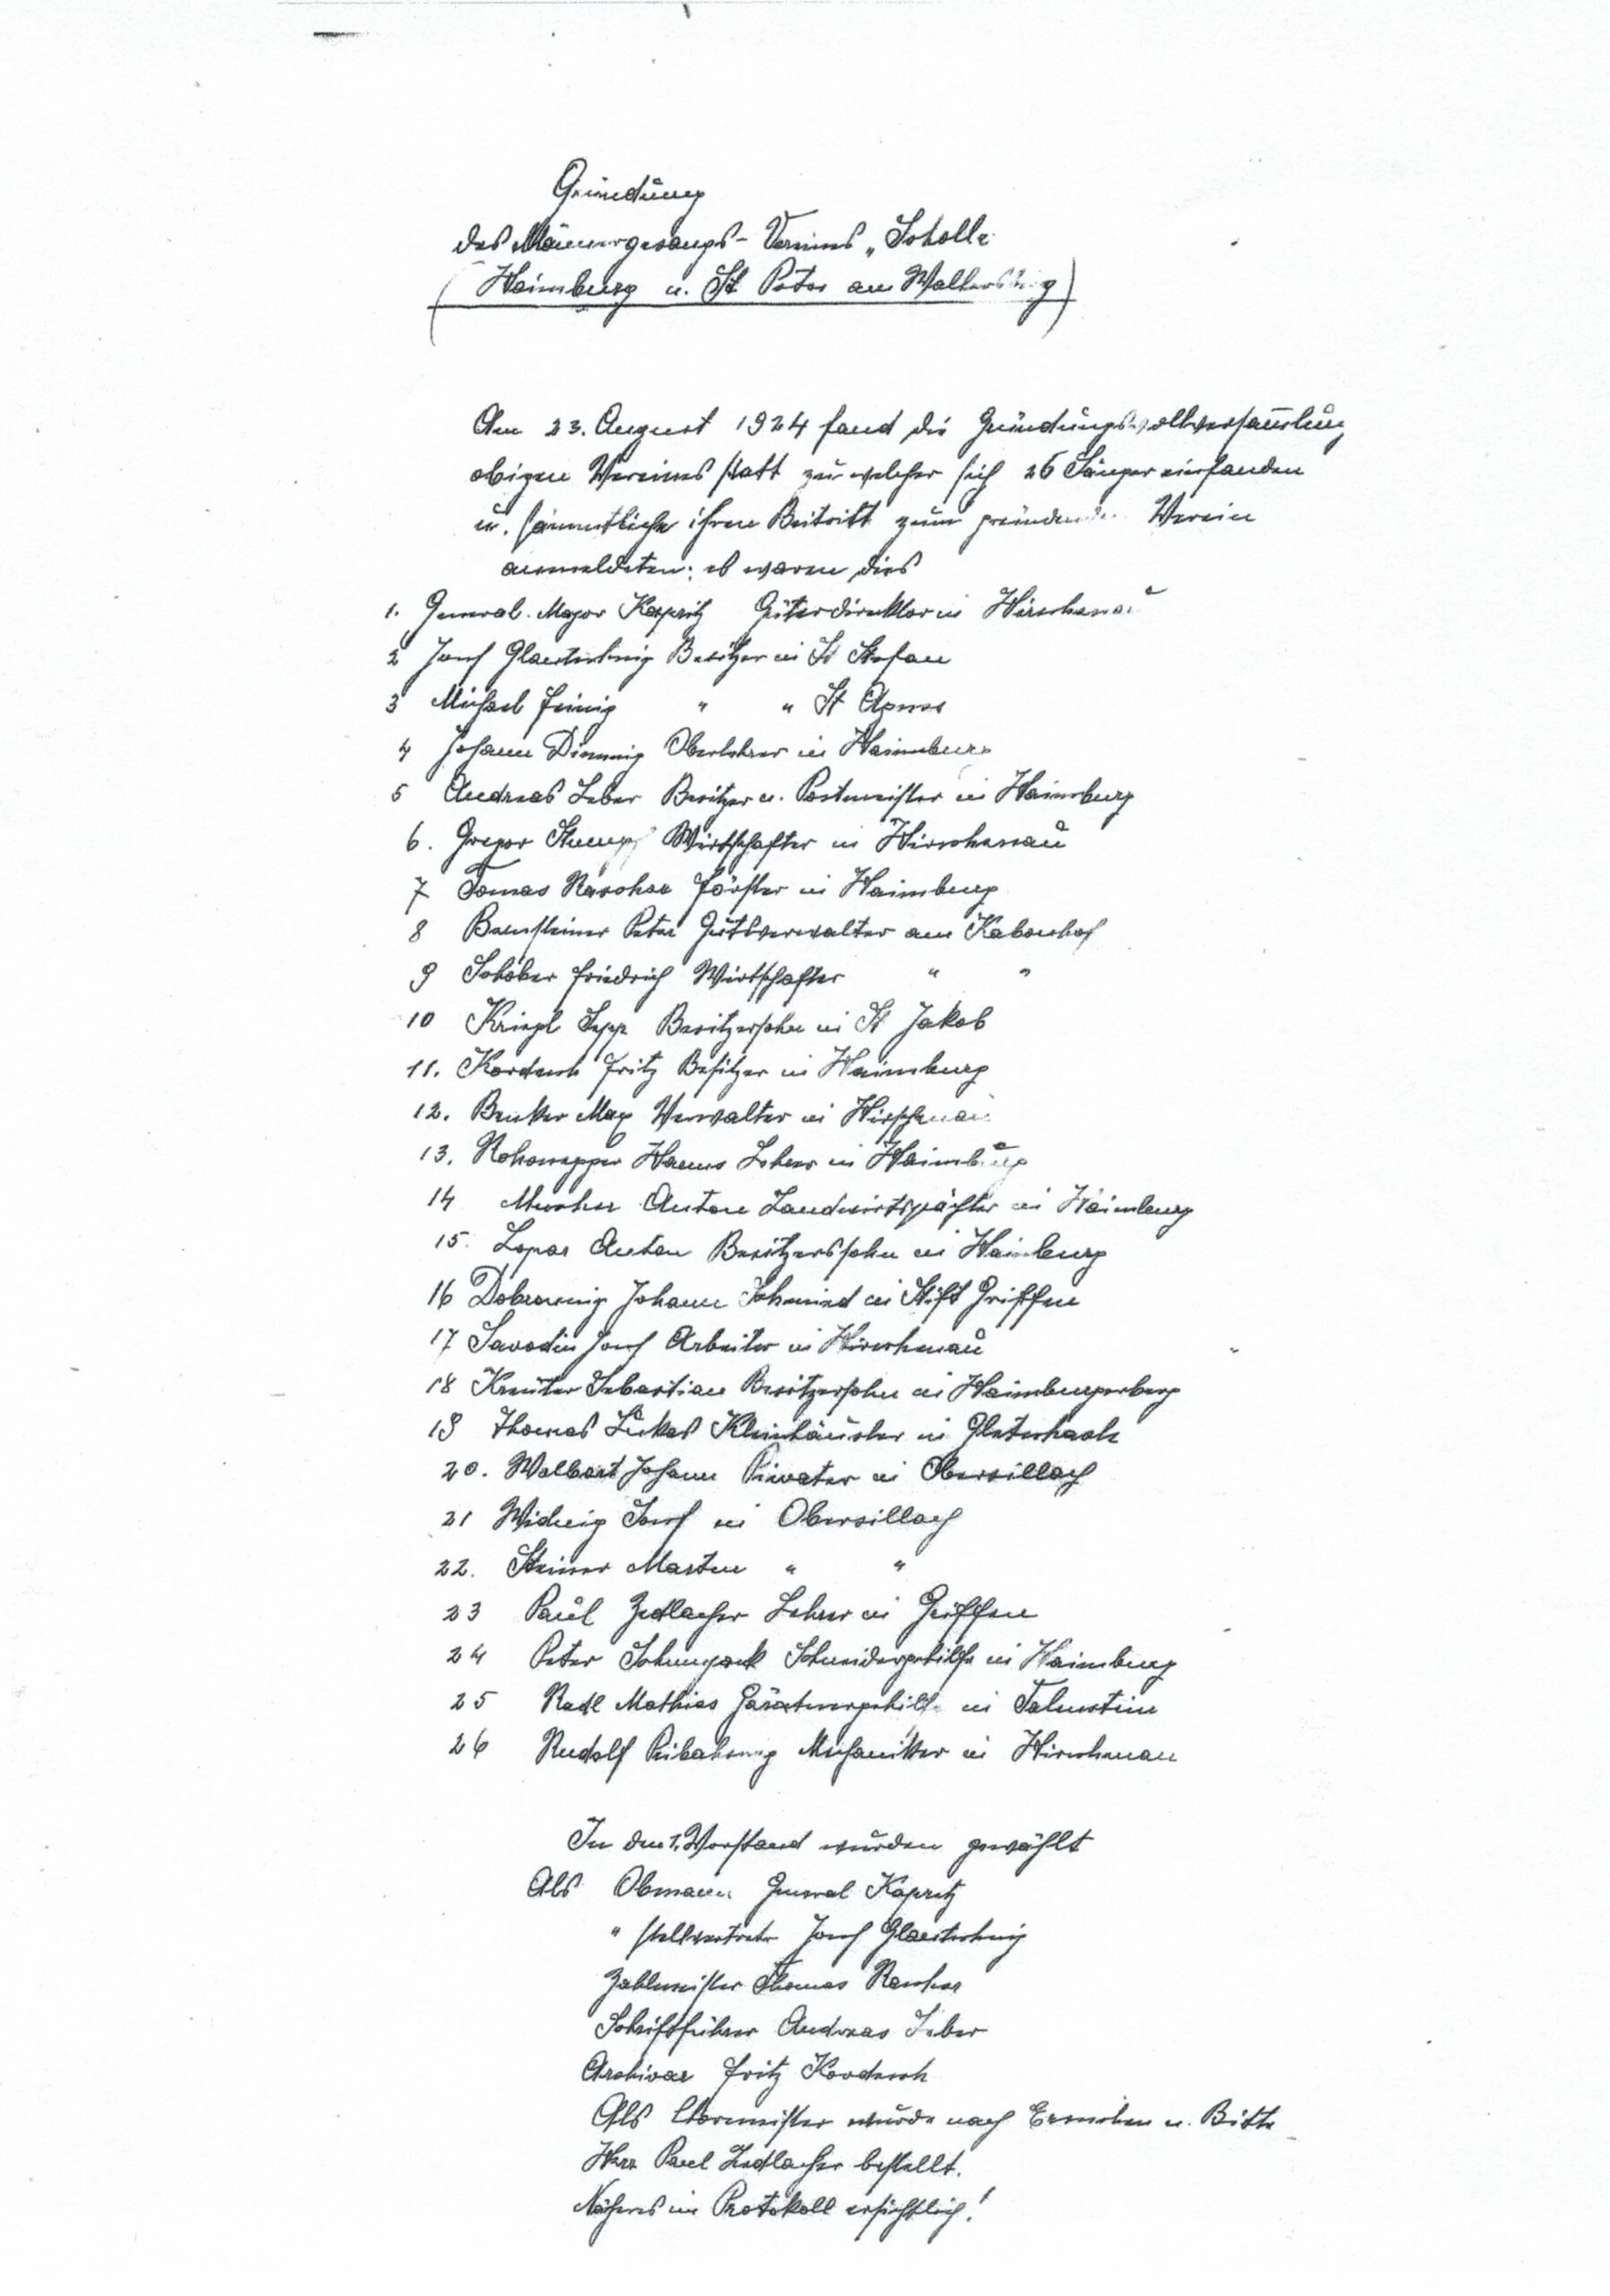 Gründung
des Männergesangs-Vereines „Scholle
(Haimburg u. St Peter am Wallersberg)
Am 23. August 1924 fand die Gründungsvollversam̅lung
obigen Vereines statt zu welcher sich 26 Sänger einfanden
u. sämmtliche ihren Beitritt zum gründenden Verein
anmeldeten; es waren dies
1. General-Major Kapritz Güterdirektor in Hirschenau
2 Josef Glantschnig Besitzer in St Stefan
3 Michael Feinig " " St Agnes
4 Johann Oberlehrer in Haimburg
5 Andreas Leber Besitzer u. Postmeister in Haimburg
6. Gregor Stumpf Wirtschafter in Hirschenau
7 Tomas Rascher Förster in Haimburg
8 Bernsteiner Peter Gutsverwalter am
9 Schober Friedrich Wirtschafter " "
10 Kriegl Sepp Besitzersohn in St Jakob
11. Kordesch Fritz Besitzer in Haimburg
12. Max Verwalter in Hirschenau
13. Hanns Lehrer in Haimburg
14 Anton Landwirtspächter in Haimburg
15. Anton Besitzerssohn in Haimburg
16 Johann Schmied in Stift Griffen
17 Savodin Josef Arbeiter in Hirschenau
18 Kreuter Sebastian Besitzersohn in Haimburgerberg
19 Thomas Lukas Kleinhäusler in
20. Johann Privater in Obersillach
21 Widnig Josef in Obersillach
22. Steiner Marten " "
23 Paul Zedlacher Lehrer in Griffen
24 Peter Schneidergehilfe in Haimburg
25 Radl Mathias Gärtnergehilfe in
26 Rudolf Mechaniker in Hirschenau
In den 1. Vorstand wurden gewählt
Als Obmann General Kapritz
" stellvertreter Josef Glantschnig
Zahlmeister Thomas Rascher
Schriftführer Andreas Leber
Archivar Fritz Kordesch
Als Chormeister wurde nach Ersuchen u. Bitte
Herr Paul Zedlacher bestellt.
Näheres im Protokoll ersichtlich!